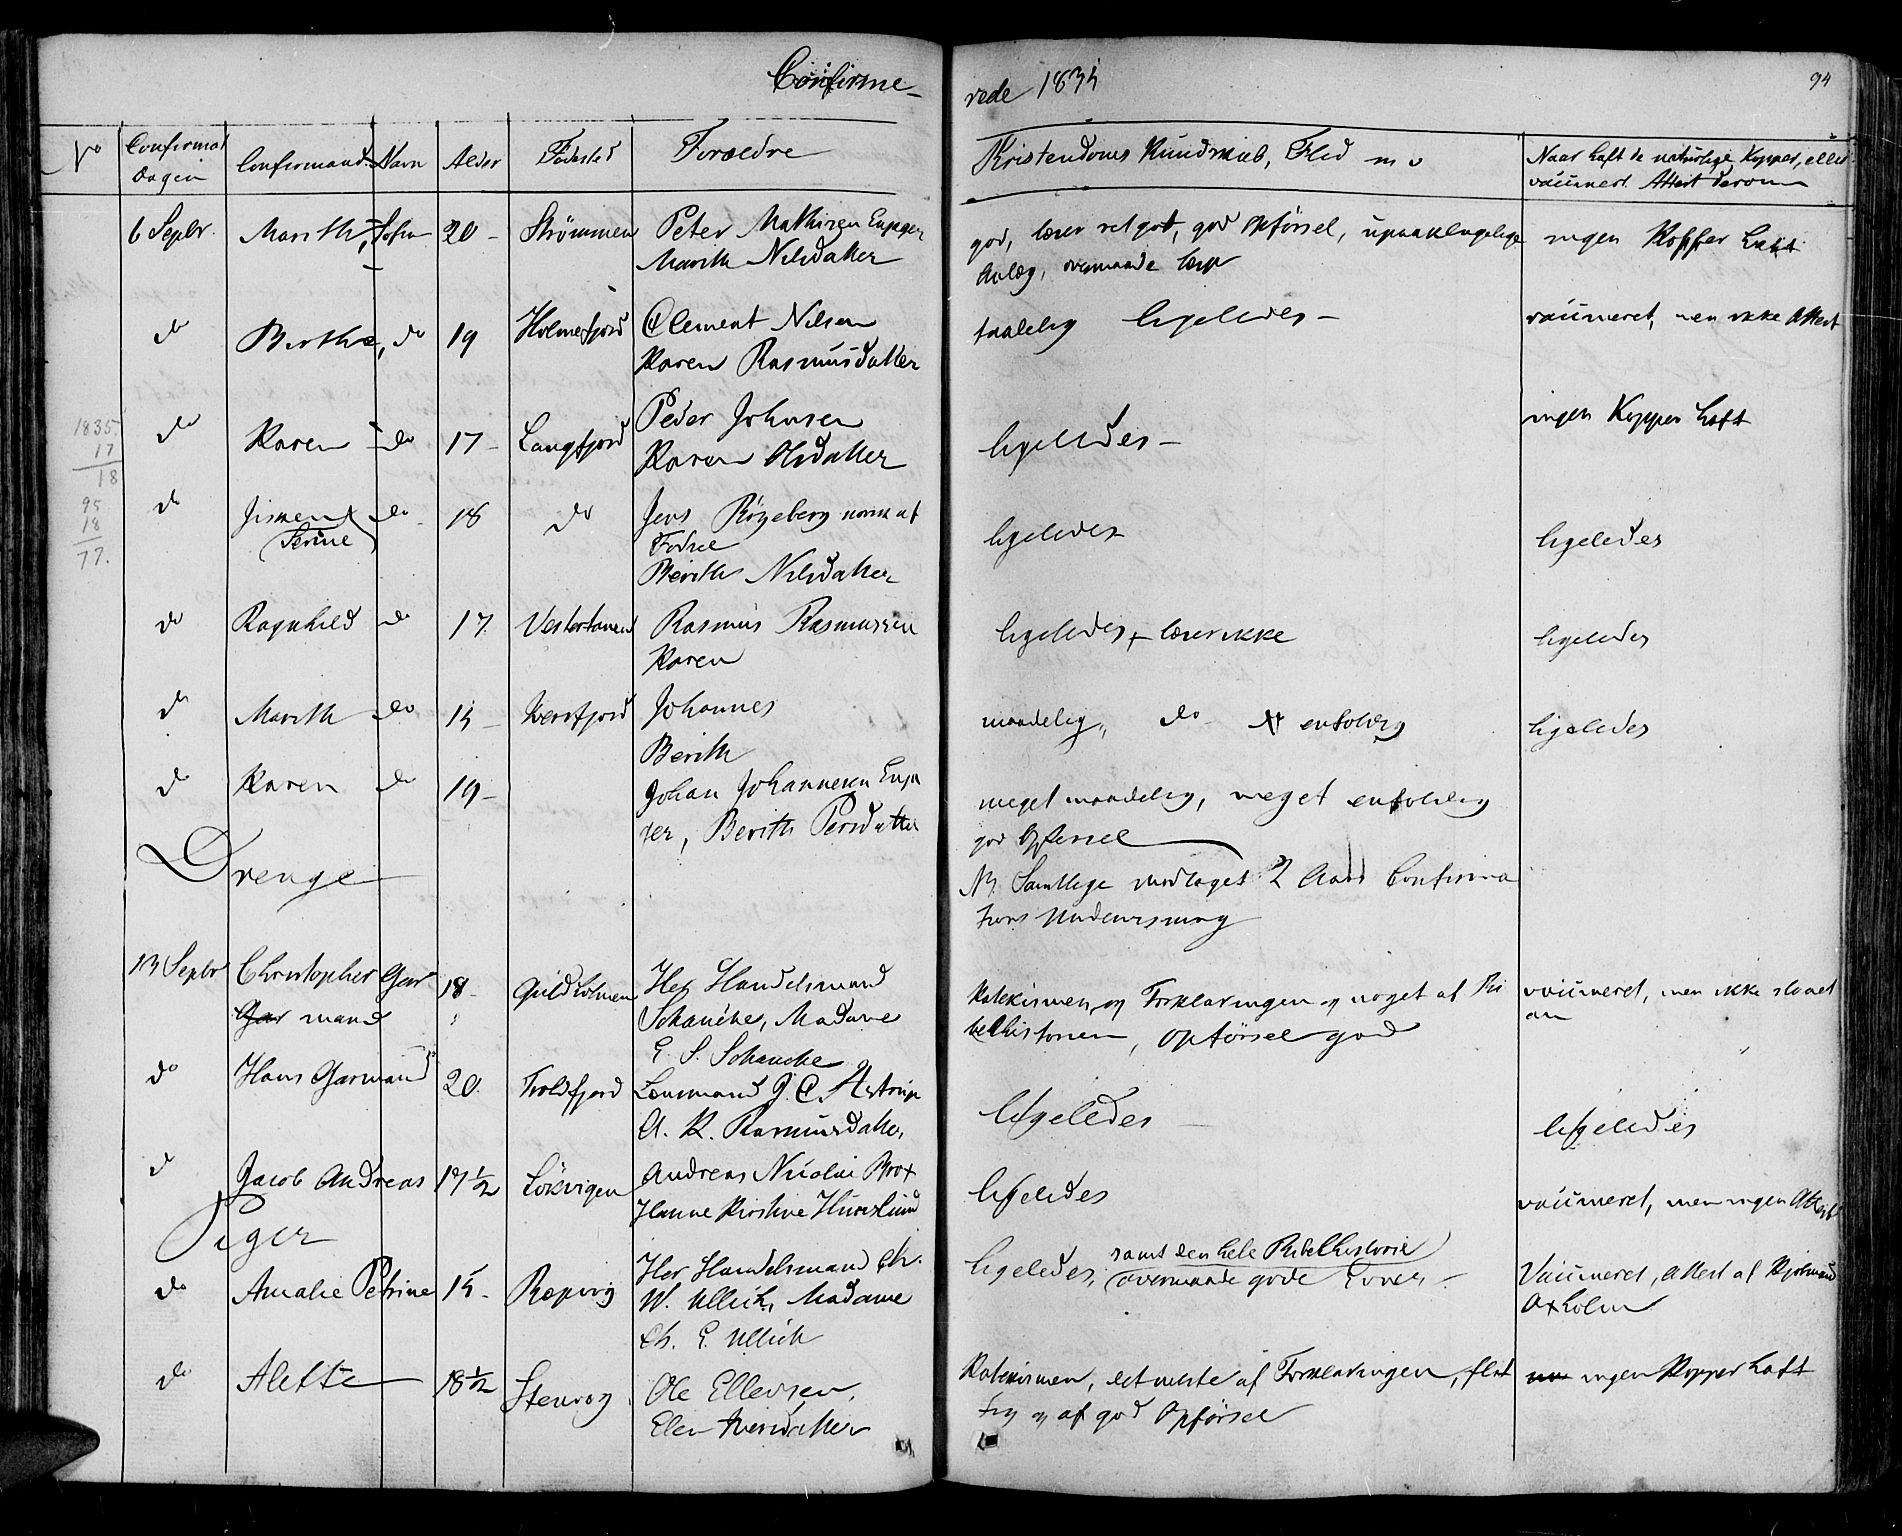 Confirme-
rede 1835
94
No
Confirmat
dagen
Confirmand. Navn
Alder
Födested
Forældre
Kristendoms Kundskab, Flid m v
Naar haft de naturlige Kopper, eller
vaccineret. Attest derom
6 Septbr. Marith, 20 - Strömmen Peter Mathisen
Marith Nilsdatter
god, læser ret godt, god Opförsel, upaaklagelige
Anlæg,
ingen Kopper haft
do Berthe, do 19 Holmefjord Clement Nilsen
Karen Rasmusdatter
taalelig ligeledes -
vaccineret, men ikke Attest
1835
17
18
do Karen do 17 - Langfjord Peder Johnsen
Karen Olsdatter
ligeledes -
ingen Kopper haft
95
18
77.
do do 18 do Jens norsk af
Fodsel
Berith Nilsdatter
ligeledes
ligeledes
do Ragnhild do 17 Vestertanen Rasmus Rasmussen
Karen
ligeledes, - læser ikke
ligeledes
do Marith do 15 - Johannes
Berith
maadelig, do enfoldig
ligeledes
do Karen do 19 - Johan Johannesen
Berith Persdatter
meget maadelig, meget enfoldig
god Opförsel
NB. Samtlige modtaget 2 Aars Confirma
tions Underviisning
Drenge
13 Septbr Christopher Gar
mand
18 - Guldholmen Her Handelsmand
Schancke, Madame
E. S. Schancke
Katekismen og Forklaringen og noget af Bi
belhistorien, Opförsel god
vaccineret, men ikke slaaet
an
do Hans Garmand 20. Troldfjord Lensmand J. C. Astrup
A. K. Rasmusdatter
ligeledes -
ligeledes
do Jacob Andreas 17½ Lökvigen Andreas Nicolai Brox
Hanne Kirstine
ligeledes
vaccineret, men ingen Attest
Piger
do Amalie Petrine 15 - Repvog Her Handelsmand Ch.
W. Ullich, Madame
Ch. E. Ullich
ligeledes, samt den hele Bibelhistorie
overmaade gode Evner -
Vaccineret, Attest af
Axholm
do Alette 18½ Stenvog Ole Ellevsen,
Elen Iversdatter
Katekismen, det meste af Forklaringen, flit
tig og af god Opförsel
ingen Kopper haft